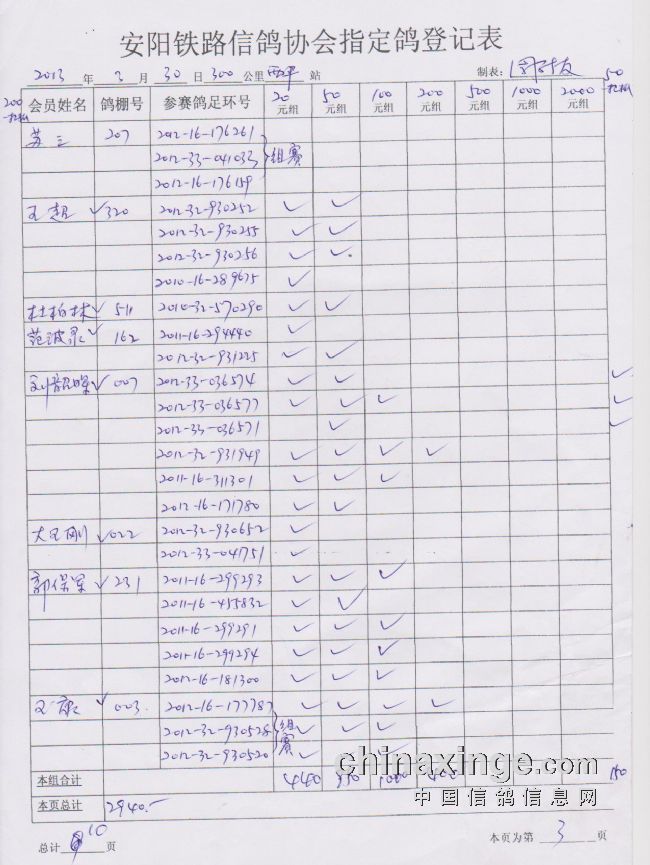 安阳铁路信鸽协会指定鸽登记表
2013 年 3 月 30 日 300 公里 西平 站 制表:
200 会员姓名 鸽棚号 参赛鸽足环号 20元组 50元组 100元组 200元组 500元组 1000元组 2000元组 50
苏三 207 2012-16-176261
2012-33-041033 组赛
2012-16-176159
王超 ✓ 320 2012-32-930252 ✓ ✓
2012-32-930255 ✓ ✓
2012-32-930256 ✓ ✓
2010-16-289675 ✓
杜柏林 ✓ 511 2010-32-570290 ✓ ✓
范波录 ✓ 162 2011-16-294440 ✓
2012-32-931225 ✓ ✓
刘 ✓ 007 2012-33-036574 ✓ ✓ ✓
2012-33-036577 ✓ ✓ ✓ ✓
2012-33-036571 ✓ ✓
2012-32-931949 ✓ ✓ ✓ ✓
2011-16-311301 ✓ ✓ ✓
2012-16-171780 ✓ ✓
大卫刚 ✓ 022 2012-32-930652 ✓
2012-33-041751 ✓
郭保军 ✓ 231 2011-16-299293 ✓ ✓ ✓
2011-16-455832 ✓ ✓
2011-16-299291 ✓ ✓ ✓
2011-16-299294 ✓ ✓ ✓
2012-16-181300 ✓ ✓ ✓
王康 ✓ 003. 2012-16-177787 ✓ ✓ ✓ ✓
2012-32-930528 组赛 ✓ ✓ ✓
2012-32-930520 ✓ ✓
本组合计 440 150
本页总计 2940.-
总计 10 页 本页为第 3 页
chinaxinge.com
中国信鸽信息网